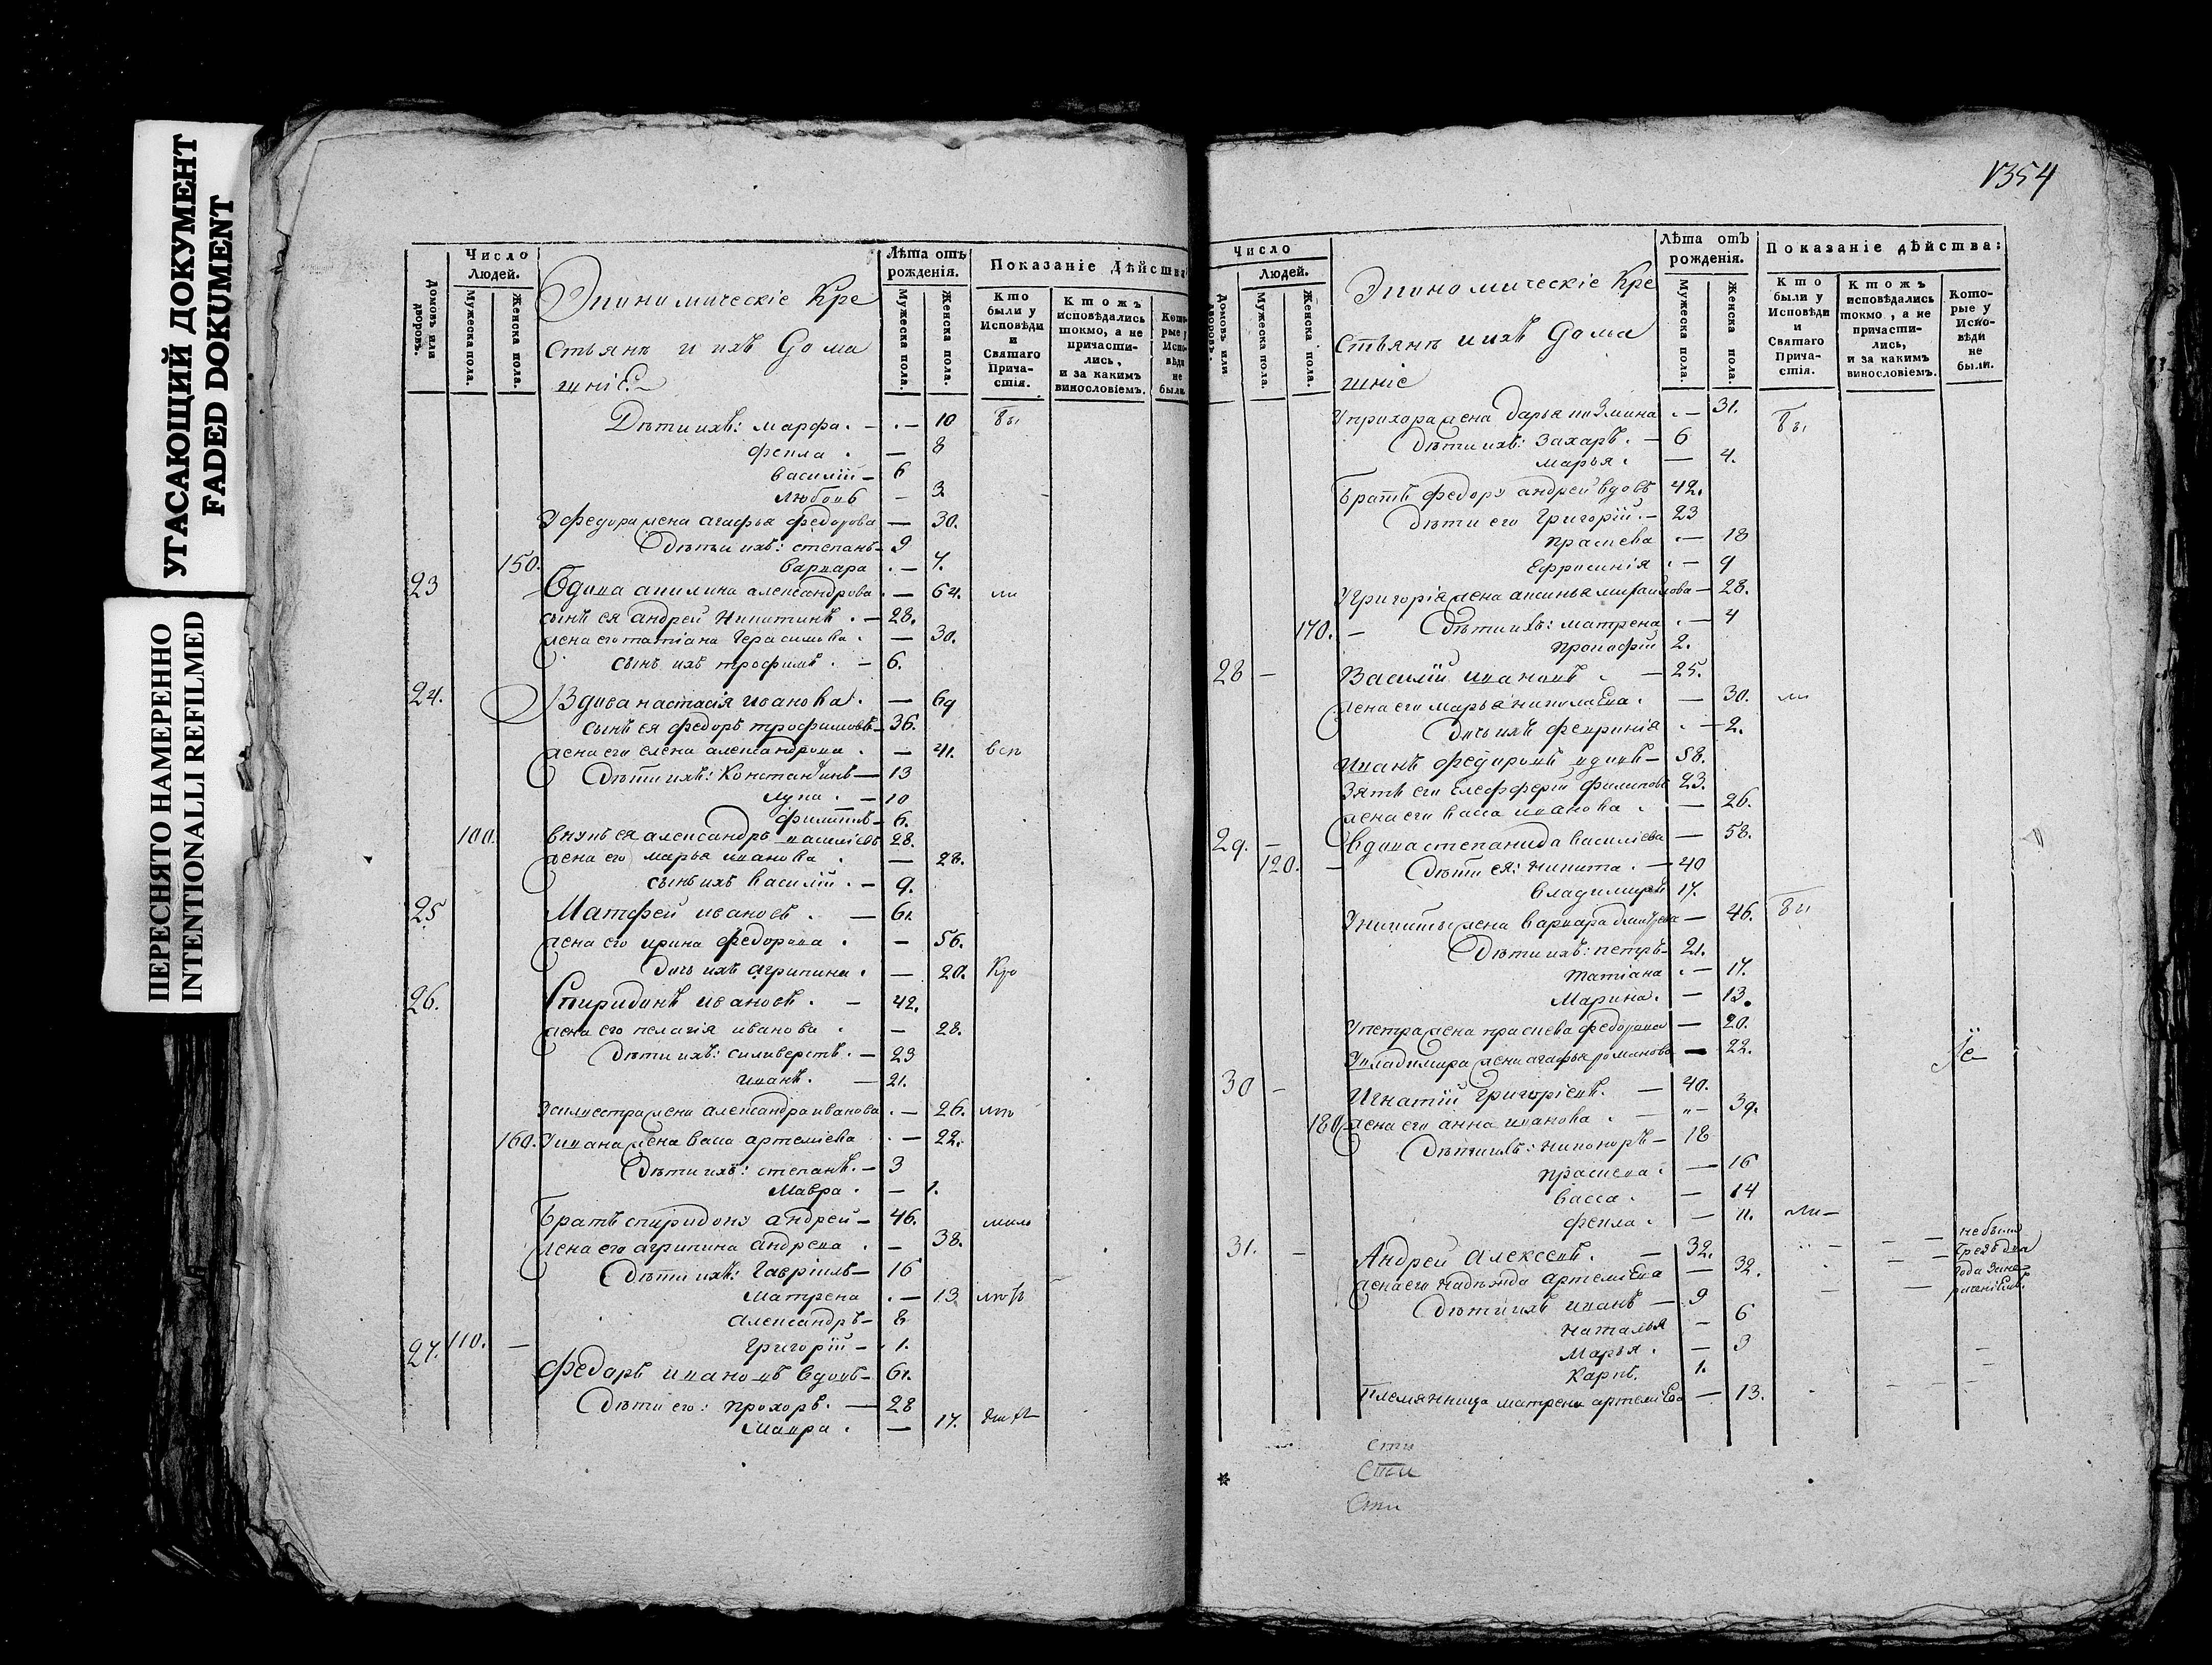 УГАСАЮЩИЙ ДОКУМЕНТ
FADED DOKUMENT
ПЕРЕСНЯТО НАМЕРЕННО
INTENTIONALLI REFILMED
Домовъ или дворовъ.
Число Людей.
Мужеска пола.
Женска пола.
Экономическіе Кре
стьянъ и ихъ дома
шніе
Лѣта отъ рожденія.
Мужеска пола.
Женска пола.
Показаніе Дѣйства
Кто были у Исповѣди и Святаго Прича- стія.
Ктожъ исповѣдались токмо, а не причасти- лись, и за какимъ винословіемъ.
Кото- рые у Испо- вѣди не были
Дѣти ихъ: марфа. — 10 бы
фекла . — 8
василій — 6
любовь — 3
У федора жена агафья федорова — 30.
Дѣти ихъ: степанъ — 9
150. варвара . — 7.
23 Вдова акилина александрова . — 64. ли
сынъ ея андрей никитинъ . — 28.
жена его татіана герасимова . — 30.
сынъ ихъ трофимъ . — 6.
24. Вдова настасія иванова . — 69
сынъ ея федоръ трофимовъ — 36.
жена его елена александрова . — 41. всѣ
Дѣти ихъ: Константинъ — 13
лука . — 10
филиппъ — 6.
100. внукъ ея александръ василіевъ 28.
жена его марья иванова . — 28.
сынъ ихъ василій . — 9.
25 Матфей ивановъ . — 61.
жена его ирина федорова . — 56.
дочь ихъ агрипина . — 20. Кро
26. Спиридонъ ивановъ . — 42.
жена его пелагія иванова . — 28.
Дѣти ихъ: силиверстъ . — 23
иванъ . — 21.
У силвестра жена александра иванова . — 26.
160. У ивана жена васа артеміева . — 22.
Дѣти ихъ: степанъ . — 3
мавра . — 1.
Братъ спиридону андрей — 46.
жена его агрипина андрева . — 38.
Дѣти ихъ: гавріилъ — 16
матрена . — 13
александръ — 8
110. — григорій — 1.
27. федоръ ивановъ вдовъ — 61.
Дѣти его: прохоръ . — 28
мавра . — 17.
1354
Домовъ или дворовъ.
Число Людей.
Мужеска пола.
Женска пола.
Экономическіе Кре
стьянъ и ихъ дома
шніе
Лѣта отъ рожденія.
Мужеска пола.
Женска пола.
Показаніе дѣйства:
Кто были у Исповѣди и Святаго Прича- стія.
Ктожъ исповѣдались токмо, а не причасти- лись, и за какимъ винословіемъ.
Кото- рые у Испо- вѣди не были.
У прохора жена дарья . — 31. бы
Дѣти ихъ: захаръ . — 6
марья . — 4.
Братъ федору андрей вдовъ 42.
Дѣти его григорій . — 23
прасковя . — 18
Ефросинія . — 9
У григорія жена аксинья михаилова — 28.
170. — Дѣти ихъ: матрена . — 4
прокофій 2.
28 — Василій ивановъ . — 25.
жена его марья николаева . — 30. ли
дочь ихъ февронія . — 2.
иванъ федоровъ вдовъ — 58.
зять его Елефферій филиповъ 23.
жена его васса иванова . — 26.
29. — Вдова степанида василіева — 58.
120. — Дѣти ея: никита . — 40
владимиръ 17.
У никиты жена варвара — 46. бы
Дѣти ихъ: петръ — 21.
татіана . — 17.
марина . — 13.
У петра жена праскева федорова — 20.
У владимира жена агафья романова — 22.
30 — Игнатій григоріевъ . — 40.
180. жена его анна иванова . — 39.
Дѣти ихъ: никоноръ — 18
праскева . — 16
васса . — 14
фекла . — 11. ли —
31. — Андрей Алексеевъ . — 32. не были
жена его надежда артеміева — 32. чрезъ два
Дѣти ихъ иванъ — 9 года за не
наталья — 6 раченіемъ
марья . — 3
карпъ . 1.
племянница матрена артеміева — 13.
сти
сти
сти